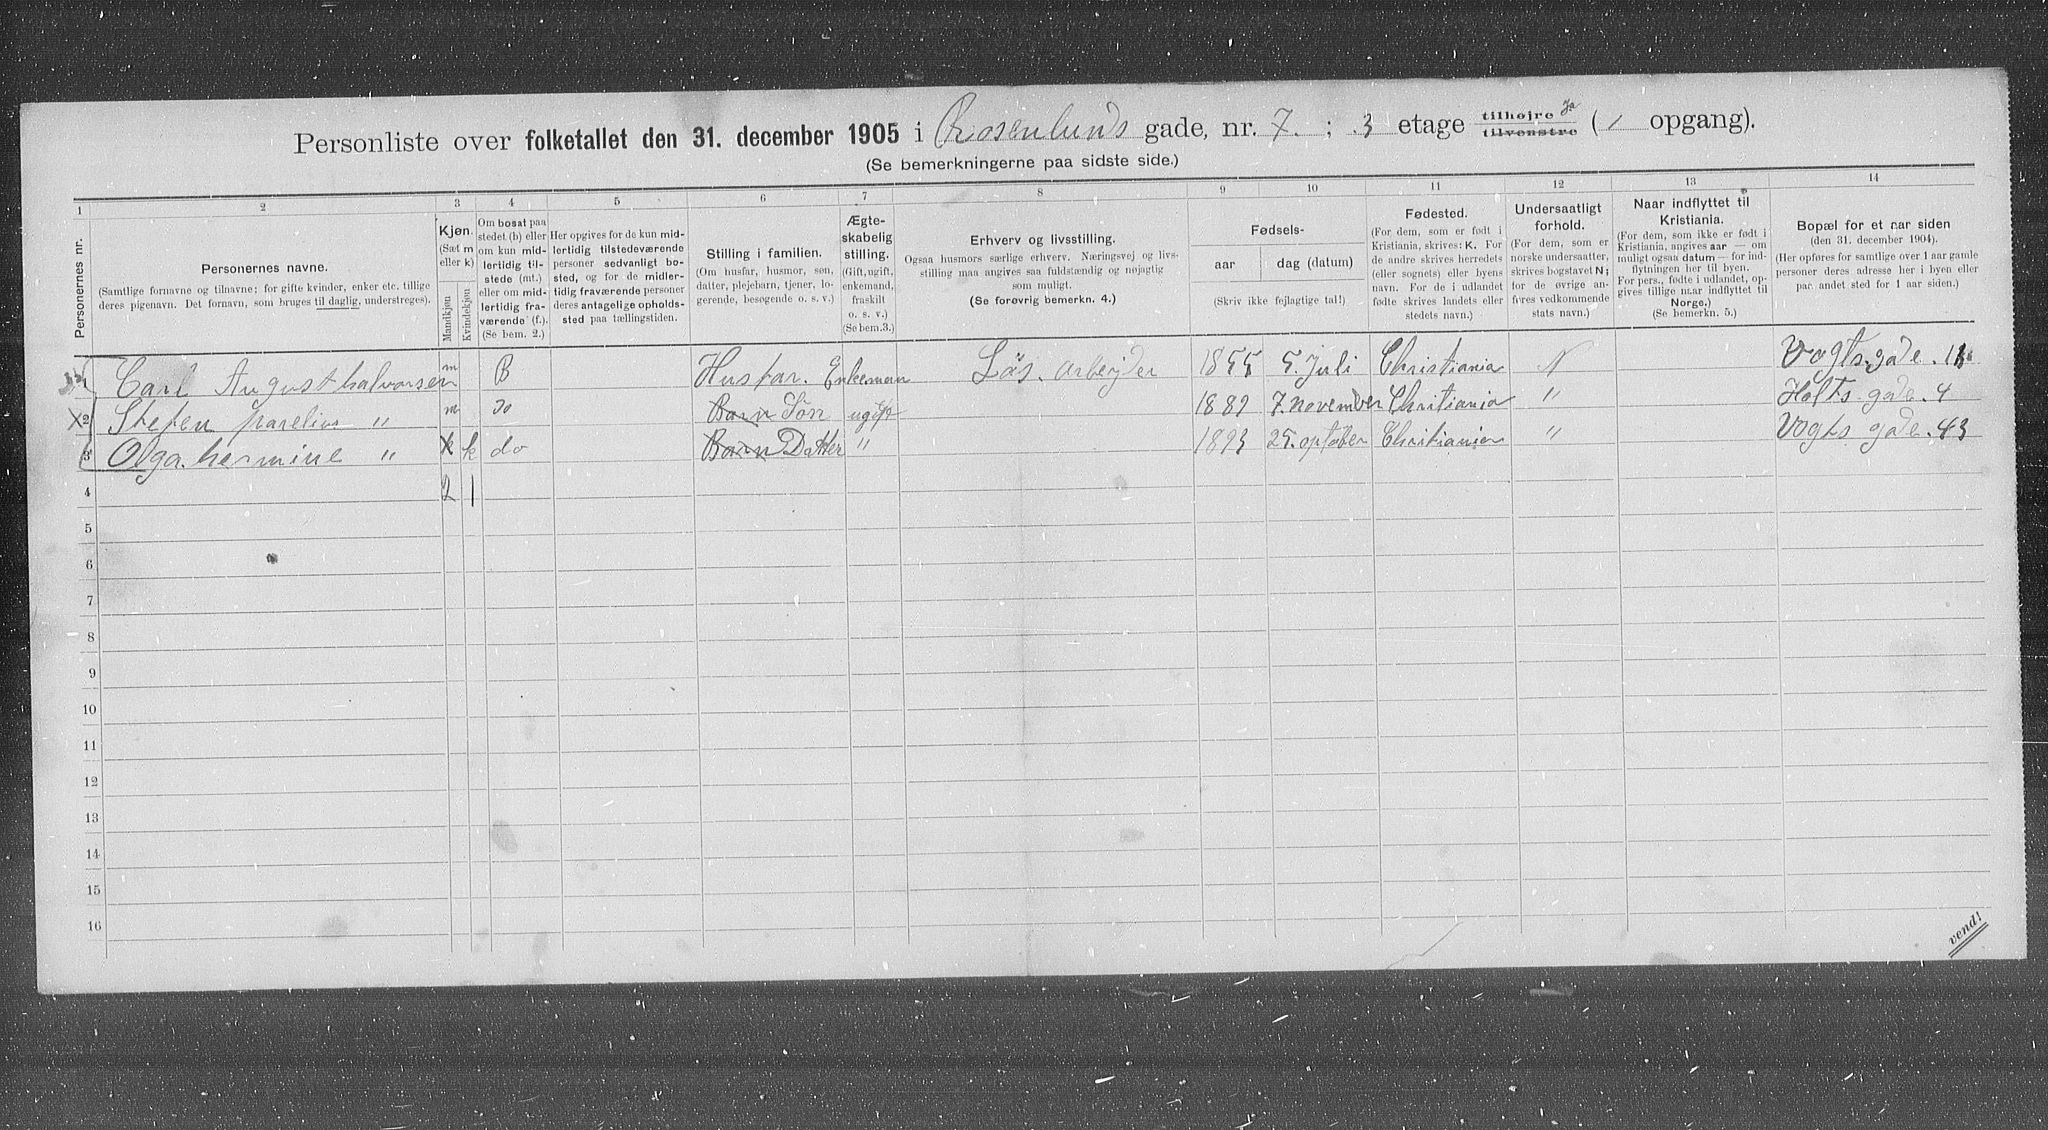 Personliste over folketallet den 31. december 1905 i Rosenlunds gade, nr. 7. ; 3 etage tilhøjre Ja tilvenstre ( 1 opgang).
(Se bemerkningerne paa sidste side.)
1 2 3 4 5 6 7 8 9 10 11 12 13 14
Personernes nr.
Personernes navne.
(Samtlige fornavne og tilnavne; for gifte kvinder, enker etc. tillige
deres pigenavn. Det fornavn, som bruges til daglig, understreges).
Kjøn.
(Sæt m
eller k)
Mandkjøn
Kvindekjøn
Om bosat paa
stedet (b) eller
om kun mid-
lertidig til-
stede (mt.)
eller om mid-
lertidig fra-
værende (f.).
(Se bem. 2.)
Her opgives for de kun mid-
lertidig tilstedeværende
personer sedvanligt bo-
sted, og for de midler-
tidig fraværende personer
deres antagelige opholds-
sted paa tællingstiden.
Stilling i familien.
(Om husfar, husmor, søn,
datter, plejebarn, tjener, lo-
gerende, besøgende o. s. v.)
Ægte-
skabelig
stilling.
(Gift, ugift,
enkemand,
fraskilt
o. s. v.)
(Se bem.3.)
Erhverv og livsstilling.
Ogsaa husmors særlige erhverv. Næringsvej og livs-
stilling maa angives saa fuldstændig og nøjagtig
som muligt.
(Se forøvrig bemerkn. 4.)
Fødsels-
aar dag (datum)
(Skriv ikke fejlagtige tal!)
Fødested.
(For dem, som er født i
Kristiania, skrives: K. For
de andre skrives herredets
(eller sognets) eller byens
navn. For de i udlandet
fødte skrives landets eller
stedets navn.)
Undersaatligt
forhold.
(For dem, som er
norske undersaatter,
skrives bogstavet N;
for de øvrige an-
føres vedkommende
stats navn.)
Naar indflyttet til
Kristiania.
(For dem, som ikke er født i
Kristiania, angives aar — om
muligt ogsaa datum — for ind-
flytningen her til byen.
For pers., fødte i udlandet, op-
gives tillige naar indflyttet til
Norge.)
(Se bemerkn. 5.)
Bopæl for et aar siden
(den 31. december 1904).
(Her opføres for samtlige over 1 aar gamle
personer deres adresse her i byen eller
paa andet sted for 1 aar siden.)
1 Carl August halvorsen m B Husfar. Enkeman Løs. arbeyder 1855 5. Juli Christiania N Vogts. gade.
x2 Stefen parelius " m do Barn Søn ugift 1889 7. november Christiania " Holts gade. 4
3 Olga hermine " k k do Barn Datter " 1893 25. optober Christiania " Vogts gade. 43
4 2 1
5
6
7
8
9
10
11
12
13
14
15
16
vend!